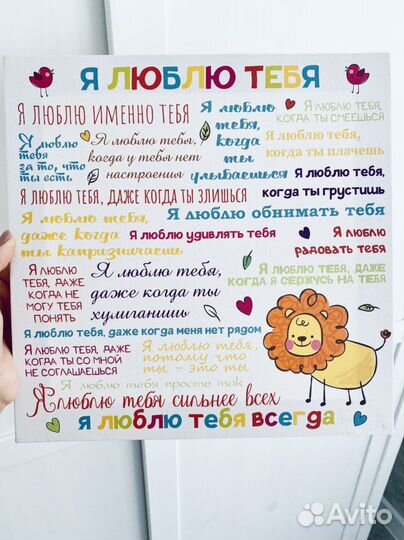 Я ЛЮБЛЮ ТЕБЯ
Я ЛЮБЛЮ ИМЕННО ТЕБЯ
Я люблю
тебя,
когда
ты
улыбаешься
Я ЛЮБЛЮ ТЕБЯ,
КОГДА ТЫ СМЕЕШЬСЯ
Я люблю
тебя
за то, что
ты есть
Я люблю тебя,
когда у тебя нет
настроения
Я люблю тебя,
когда ты плачешь
Я люблю тебя,
когда ты грустишь
Я ЛЮБЛЮ ТЕБЯ, ДАЖЕ КОГДА ТЫ ЗЛИШЬСЯ
Я люблю тебя,
даже когда
ты капризничаешь
Я люблю обнимать тебя
Я люблю удивлять тебя
Я люблю
радовать тебя
Я ЛЮБЛЮ
ТЕБЯ, ДАЖЕ
КОГДА НЕ
МОГУ ТЕБЯ
ПОНЯТЬ
Я люблю тебя,
даже когда ты
хулиганишь
Я ЛЮБЛЮ ТЕБЯ, ДАЖЕ
КОГДА Я СЕРЖУСЬ НА ТЕБЯ
Я люблю тебя, даже когда меня нет рядом
Я ЛЮБЛЮ ТЕБЯ, ДАЖЕ
КОГДА ТЫ СО МНОЙ
НЕ СОГЛАШАЕШЬСЯ
Я люблю тебя,
потому что
ты - это ты
Я люблю тебя просто так
Я люблю тебя сильнее всех
Я ЛЮБЛЮ ТЕБЯ ВСЕГДА
Avito